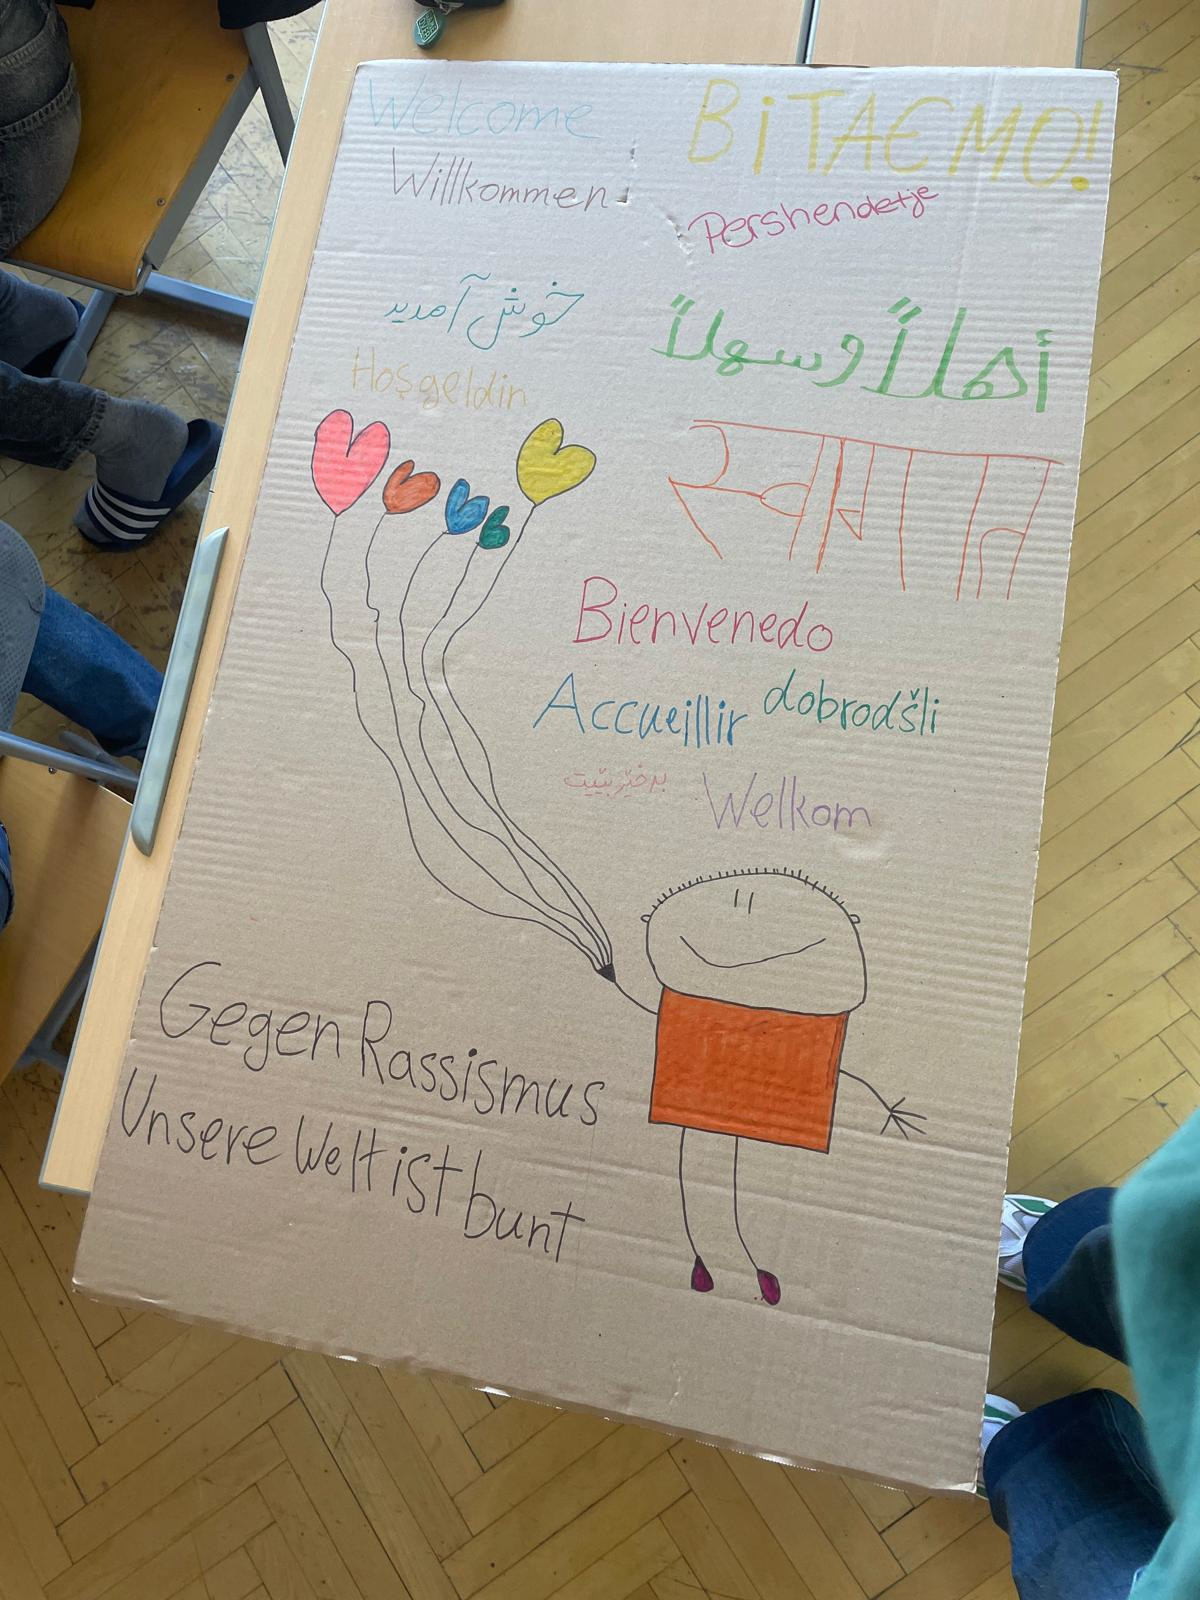 Welcome
ВіТАЄМО!
Willkommen
Pershendetje
خوش آمدید
أهلاً وسهلاً
Hoşgeldin
स्वागत
Bienvenedo
Accueillir
dobrodšli
بەخێر بێیت
Welkom
Gegen Rassismus
Unsere Welt ist bunt